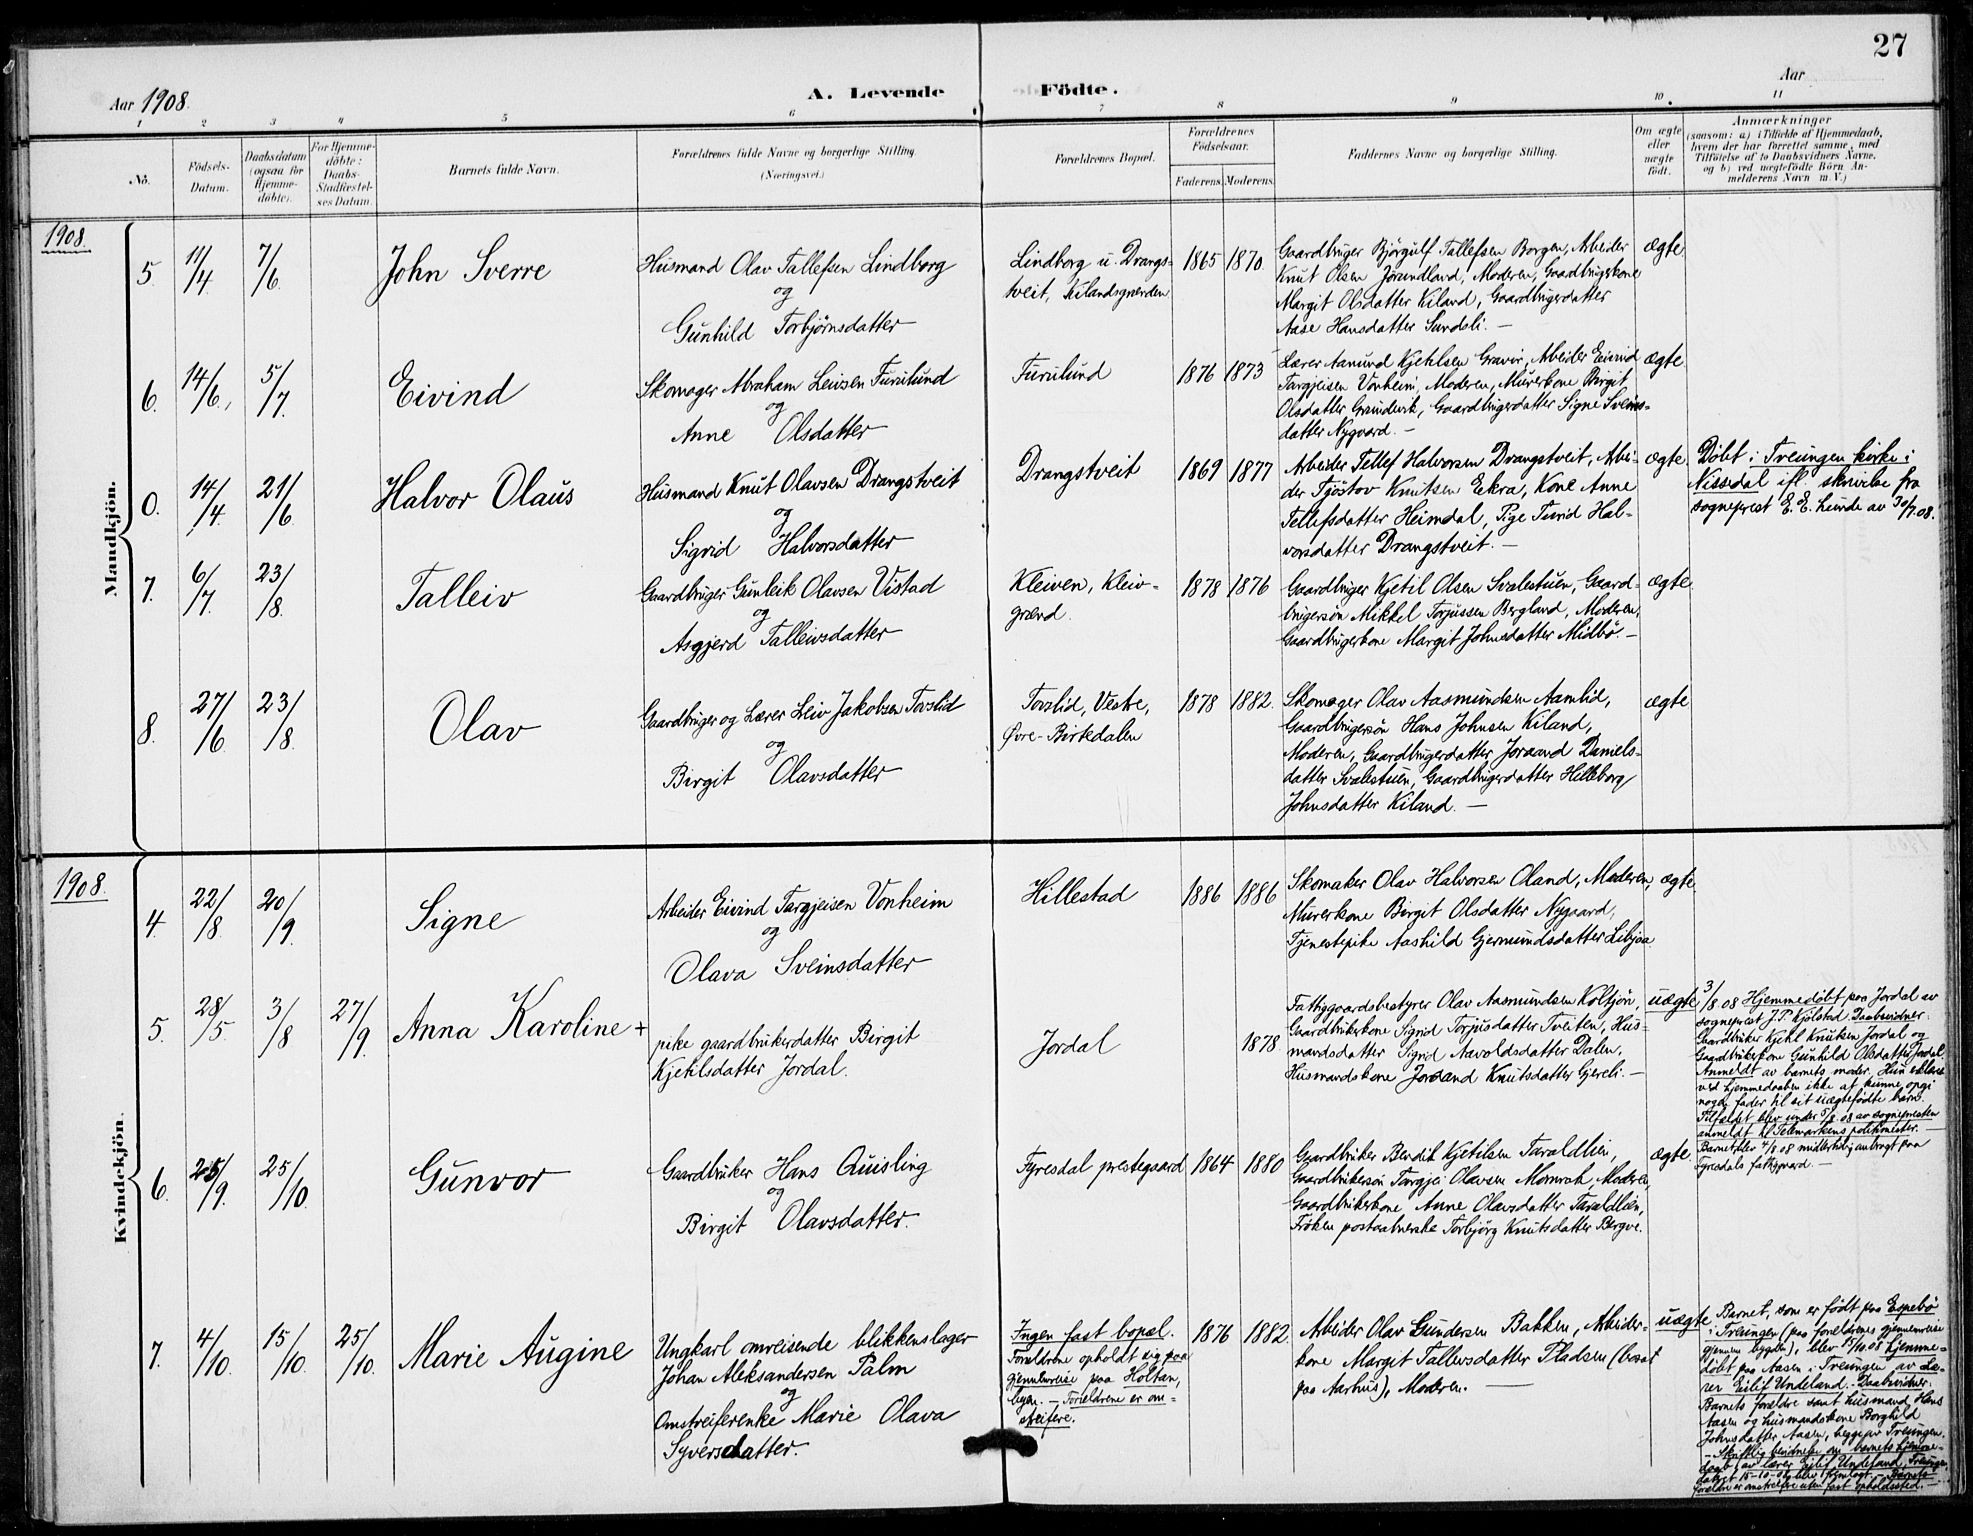 27
Aar 1908.
A. Levende Födte.
Aar
1 2 3 4 5 6 7 8 9 10. 11
No.
Födsels-
Datum.
Daabsdatum
(ogsaa for
Hjemme-
döbte).
For Hjemme-
döbte:
Daabs-
Stadfæstel-
ses Datum.
Barnets fulde Navn.
Forældrenes fulde Navne og borgerlige Stilling.
(Næringsvei.)
Forældrenes Bopæl.
Forældrenes
Födselsaar.
Faderens. Moderens.
Faddernes Navne og borgerlige Stilling.
Om ægte
eller
uægte
födt.
Anmærkninger
(saasom: a) i Tilfælde af Hjemmedaab,
hvem der har forrettet samme, med
Tilföielse af to Daabsvidners Navne.
og b) ved uægtefödte Börn An-
melderens Navn m. V.)
1908.
Mandkjön.
5. 11/4. 7/6. John Sverre
Husmand Olav Tallefsen Lindborg
og
Gunhild Torbjørnsdatter
Lindborg u. Drangs-
tveit, Kilandsgrænden
1865 1870.
Gaardbruger Bjørgulf Tallefsen Borgen, Arbeider
Knut Olsen Jørundland, Moderen, Gaardbrugerkone
Margit Olsdatter Kiland, Gaardbrugerdatter
Aase Hansdatter Sundsli. —
ægte
6. 14/6, 5/7. Eivind
Skomager Abraham Leivsen Furulund
og
Anne Olsdatter
Furulund
1876 1873
Lærer Aanund Kjetilsen Gravir, Arbeider Eivind
Targjeisen Vonheim, Moderen, Murerkone Birgit
Olsdatter Grundevik, Gaardbrugerdatter Signe Sveins-
datter Nygaard. —
ægte
0. 14/4. 21/6. Halvor Olaus
Husmand Knut Olavsen Drangstveit
og
Sigrid Halvorsdatter
Drangstveit
1869 1877
Arbeider Tellef Halvorsen Drangstveit, Arbei-
der Tjöstov Knutsen Eekra, Kone Anne
Tellefsdatter Heimdal, Pige Turid Hal-
vorsdatter Drangstveit. —
ægte
Döbt i Treungen kirke i
Nissedal ifl. skrivelse fra
sogneprest E. E. Lunde av 30/7.08.
7. 6/7. 23/8. Talleiv
Gaardbruger Gunleik Olavsen Vistad
og
Asgjerd Talleivsdatter
Kleiven, Kleiv-
grænd.
1878 1876
Gaardbruger Kjetil Olsen Svalestuen, Gaard-
brugersøn Mikkel Torjussen Bergland, Moderen,
Gaardbrugerkone Margit Johnsdatter Midbø. —
ægte
8. 27/6. 23/8. Olav
Gaardbruger og Lærer Leiv Jakobsen Tovslid
og
Birgit Olavsdatter
Tovslid, Vestre,
Øvre-Birtedalen
1878 1882.
Skomager Olav Aasmundsen Aamlid,
Gaardbrugersøn Hans Johnsen Kiland,
Moderen, Gaardbrugerdatter Joraand Daniels-
datter Svalestuen, Gaardbrugerdatter Hilleborg
Johnsdatter Kiland. —
ægte
1908.
Kvindekjön.
4. 22/8. 20/9. Signe
Arbeider Eivind Targjeisen Vonheim
og
Olava Sveinsdatter
Hillestad
1886 1886
Skomaker Olav Halvorsen Oland, Moderen,
Murerkone Birgit Olsdatter Nygaard,
Tjenestepike Aashild Gjermundsdatter Libjoa
ægte.
5. 28/5. 3/8. 27/9. Anna Karoline +
pike gaardbrukerdatter Birgit
Kjetilsdatter Jordal.
Jordal
1878
Fattiggaardsbestyrer Olav Aasmundsen Koltjøn,
Gaardbrukerkone Sigrid Torjusdatter Tveiten, Hus-
mandsdatter Sigrid Aavoldsdatter Dalen,
Husmandskone Joraand Knutsdatter Gjereli. —
uægte
3/8 08 Hjemmedøbt paa Jordal av
sogneprest J. P. Kjölstad. Daabsvidner:
Gaardbruker Kjetil Knutsen Jordal og
Gaardbrukerkone Gunhild Olsdatter Jordal.
Anmeldt av barnets moder. Hun erklærte
ved hjemmedaaben ikke at kunne opgi
nogen fader til sit uægtefødte barn.
Tilfældet blev under 5/8 08 av sognepresten
anmeldt til Telemarkens politimester. —
Barnet blev 4/8 08 midlertidig anbragt paa
Tyrsdals fattiggaard. —
6. 25/9. 25/10. Gunvor
Gaardbruker Hans Quisling
og
Birgit Olavsdatter.
Fyresdal prestegaard
1864 1880
Gaardbruker Bendik Kjetilsen Taraldlien,
Gaardbrukersøn Targjei Olavsen Momrak, Moderen,
Gaardbrukerkone Anne Olavsdatter Taraldlien,
Frøken postaabnerske Torbjørg Knutsdatter Bergve.
ægte.
7. 4/10. 15/10. 25/10. Marie Augine
Ungkarl omreisende blikkenslager
Johan Aleksandersen Palm
og
Omstreiferenke Marie Olava
Syversdatter.
Ingen fast bopæl.
Forældrene opholdt sig paa
gjennemreise paa Holtan,
— Forældrene er om-
streifere.
1876 1882
Arbeider Olav Gundersen Bakken, Arbeider-
kone Margit Tallevsdatter Pladsen (bosat
paa Aarhus), Moderen. —
uægte
Barnet, som er født paa Espebø
i Treungen (paa forældrenes gjennemreise
gjennem bygden), blev 15/10.08 hjemme-
døbt paa Aasen i Treungen av Læ-
rer Eilif Undeland. Daabsvidner:
Barnets forældre samt husmand Hans
Aasen og husmandskone Borghild
Johnsdatter Aasen, begge av Treungen.
— Skriftlig bevidnelse om barnets hjemme-
daab av lærer Eilif Undeland, Treungen,
datert 15-10-08 blev fremlagt. — Barnets
forældre er omstreifere uten fast opholdssted. —